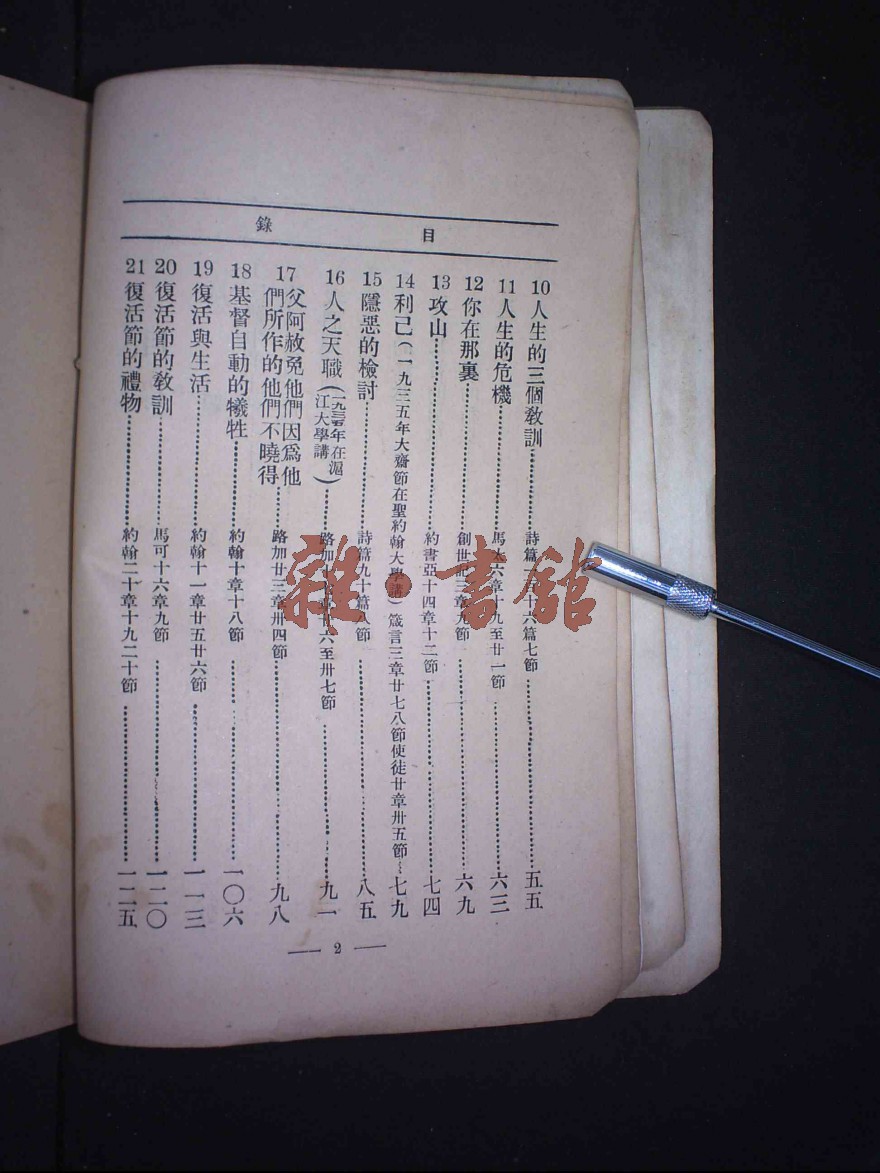 目錄
10 人生的三個教訓 詩篇一一十六篇七節 五五
11 人生的危機 馬太六章十九至廿一節 六三
12 你在那裏 創世記三章九節 六九
13 攻山 約書亞十四章十二節 七四
14 利己(一九三五年大齋節在聖約翰大學講)箴言三章廿七八節使徒廿章卅五節 七九
15 隱惡的檢討 詩篇九十篇八節 八五
16 人之天職(一九三五年在滬江大學講) 路加 六至卅七節 九一
17 父阿赦免他們因爲他們所作的他們不曉得 路加廿三章卅四節 九八
18 基督自動的犧牲 約翰十章十八節 一〇六
19 復活與生活 約翰十一章廿五廿六節 一一三
20 復活節的教訓 馬可十六章九節 一二〇
21 復活節的禮物 約翰二十章十九二十節 一二五
2
雜·書館